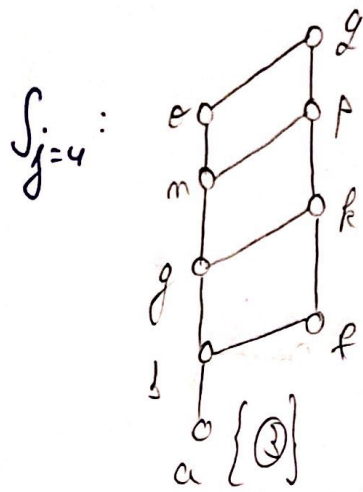 ∫j=4 :
q
e
p
n
k
g
f
b
a {③}